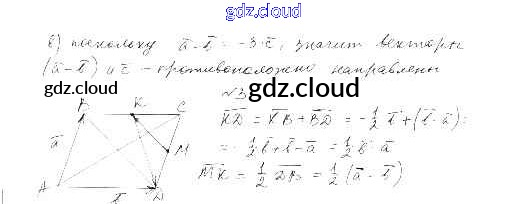 gdz.cloud
б) поскольку a̅ - b̅ = -3·c̅, значит векторы
(a̅ - b̅) и c̅ - противоположно направлены
gdz.cloud
№3
gdz.cloud
B K C
K̅D̅ = K̅B̅ + B̅D̅ = -½ b̅ + (b̅ - a̅) =
a̅
= -½ b̅ + b̅ - a̅ = ½ b̅ - a̅
M
M̅K̅ = ½ D̅B̅ = ½ (a̅ - b̅)
A b̅ D